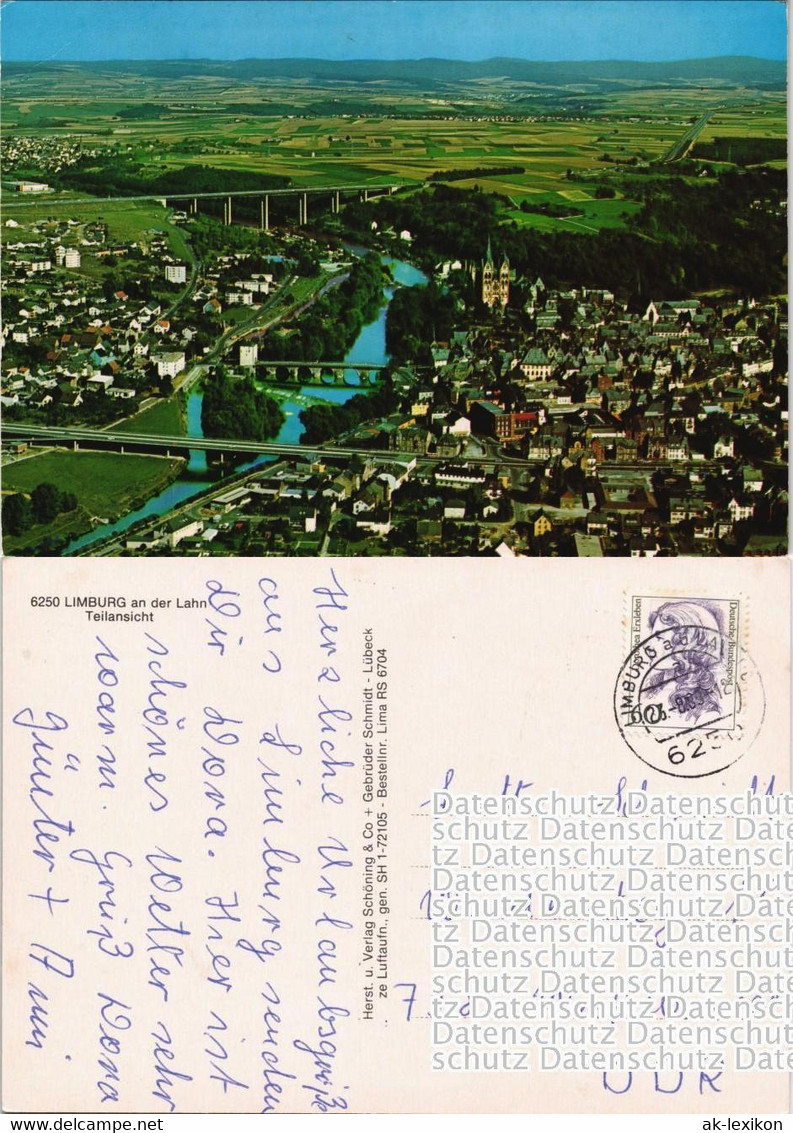 6250 LIMBURG an der Lahn
Teilansicht
Herzliche Urlaubsgrüße
aus Limburg senden
Dir Dora. Hier ist
schönes Wetter sehr
warm. Gruß Dora
Günter + Anni
Herst. u. Verlag Schöning & Co + Gebrüder Schmidt - Lübeck
ze Luftaufn., gen. SH 1-72105 - Bestellnr. Lima RS 6704
Erxleben
Deutsche Bundespost
60
LIMBURG a d LA
625
Datenschutz Datenschutz
schutz Datenschutz Datenschutz
tz Datenschutz Datenschutz
Datenschutz Datenschutz
schutz Datenschutz Datenschutz
tz Datenschutz Datenschutz
Datenschutz Datenschutz
schutz Datenschutz Datenschutz
tz Datenschutz Datenschutz
Datenschutz Datenschutz
schutz Datenschutz Datenschutz
DDR
ak-lexikon.de